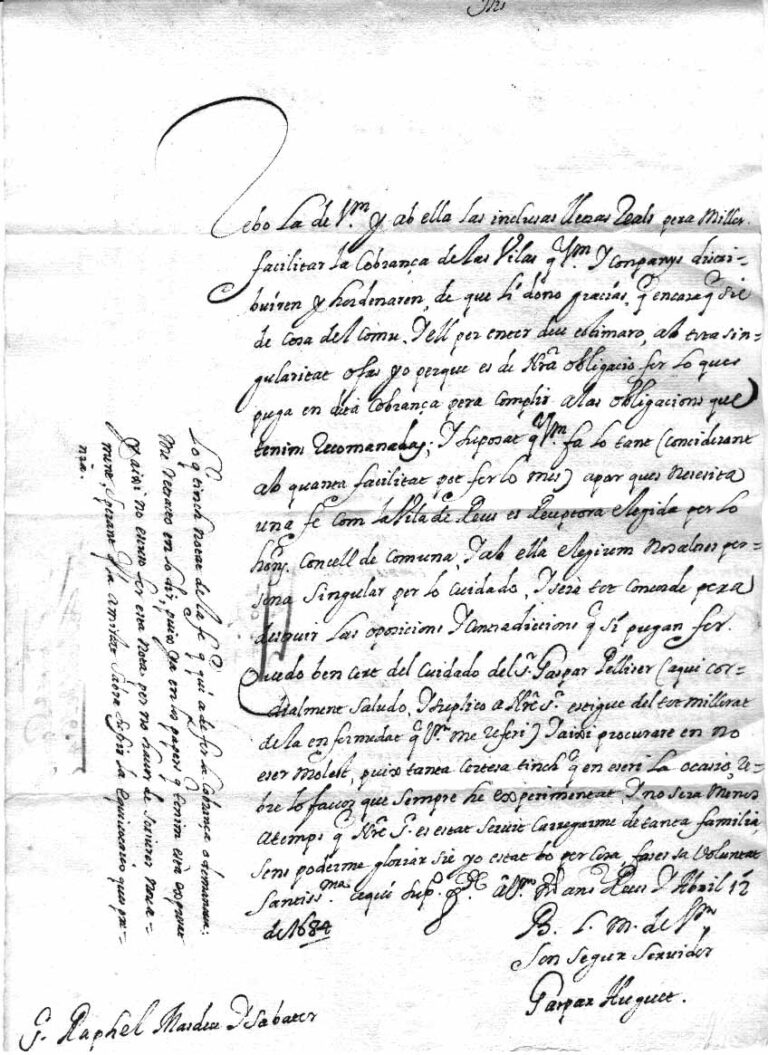 Jhs
Rebo La de Vm y ab ella las incluses lletras Reals pera Millor
facilitar la Cobrança de las Vilas q Vm y Companys distri-
buiren y hordenaren, de que li dono gracias, q encara q sie
de Cosa del Comu. Tell per encer deu estimaro, ab tota sin-
gularitat o fas yo perque es de Nra obligacio fer lo ques
puga en dita Cobrança pera complir a las obligacions que
tenim Recomanadas; y suposat q Vm fa lo tant (considerant
ab quanta facilitat pot fer lo mes) apar ques Nesesita
una fe com la Vila de Reus es Receptora elegida per lo
hon. Concell de Comuna, y ab ella elegirem Nosaltres per-
sona Singular per lo Cuidado, y sera tot concorde pera
destruir las oposicions y Contradiccions q si pugan fer.
Quedo ben cert del Cuidado del Sr. Gaspar Pelliser (a qui cor-
dialment saludo, y suplico a Nre Sr. estigue del tot millorat
de la enfermedat q Vm me referi) y aixi procurare en no
eser Molest, puix tanta certesa tinch q en eseri la ocasio, re-
bre lo favor que sempre he experimentat y no sera Menos
a temps q Nre Sr. es estat servit Carregarme de tanta familia
sens poderme gloriar sie yo estat bo per Cosa, fases sa Voluntat
Santiss.ma a qui Sup. gde a Vm M ans Reus y Abril 12
de 1684
B. L. M. de Vm
Son segur servidor
Gaspar Huguet.
Sr. Raphel Mardeu y Sabater
Lo q tinch Notat de la fe q qui a de fer la Cobrança o demanau:
Me Retracto en lo dit, puix ya en los papers q tenim esta expresat
Y aixi no eserco fer esta Nota per no haver de Nova-
ment, Sperant q la amistat Sabra Suplir la equivocacio que pre-
nia.